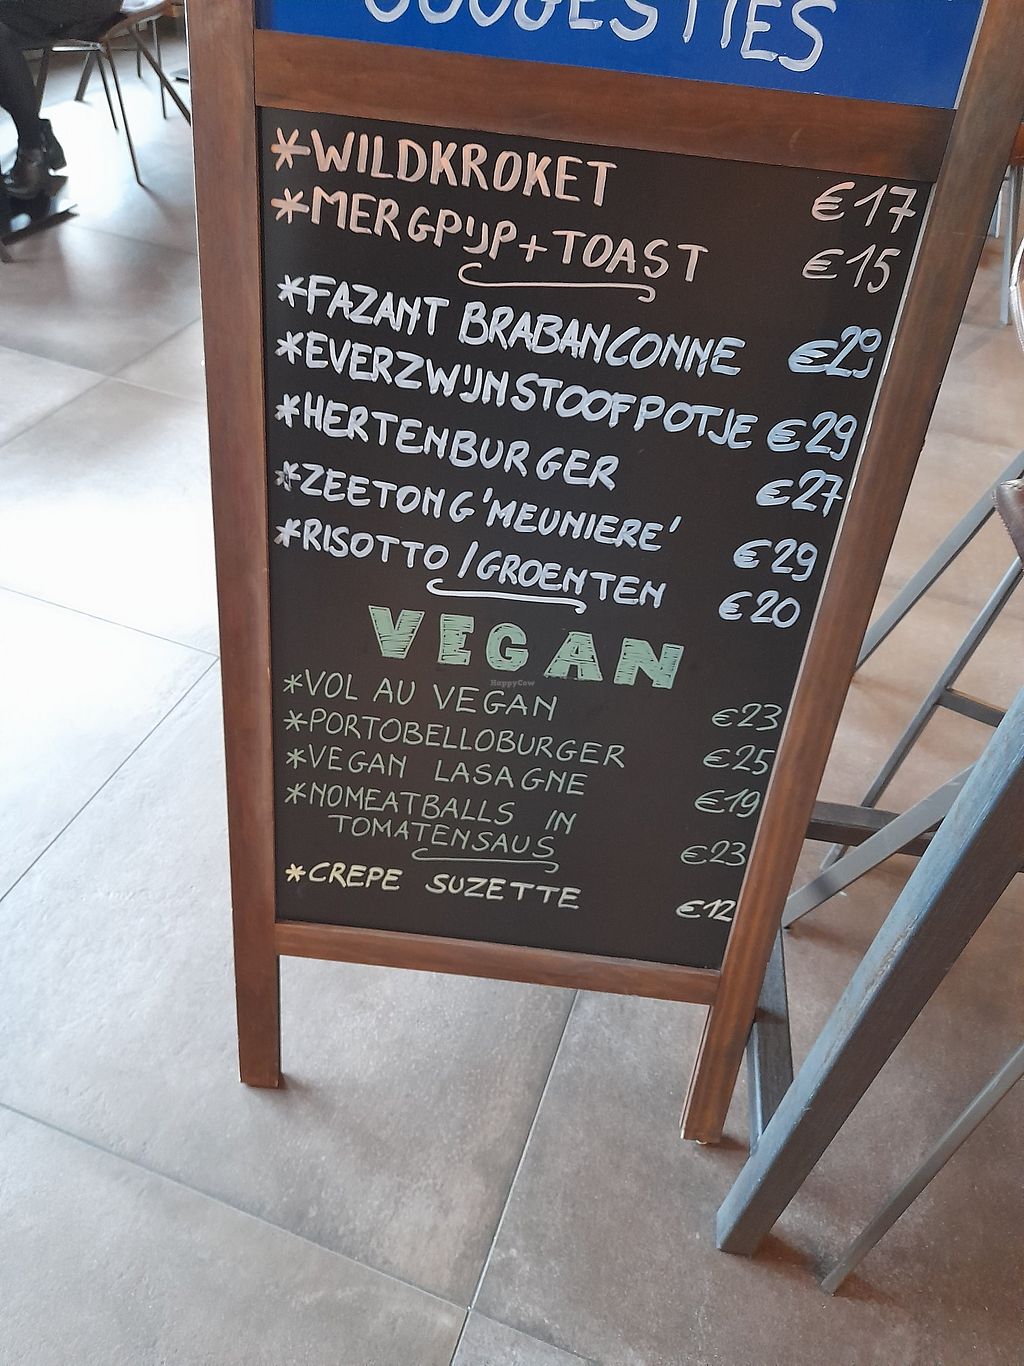 SUGGESTIES
*WILDKROKET €17
*MERGPIJP+TOAST €15
*FAZANT BRABANCONNE €29
*EVERZWIJNSTOOFPOTJE €29
*HERTENBURGER €27
*ZEETONG 'MEUNIERE' €29
*RISOTTO/GROENTEN €20
VEGAN
HappyCow
*VOL AU VEGAN €23
*PORTOBELLOBURGER €25
*VEGAN LASAGNE €19
*NOMEATBALLS IN
TOMATENSAUS €23
*CREPE SUZETTE €12